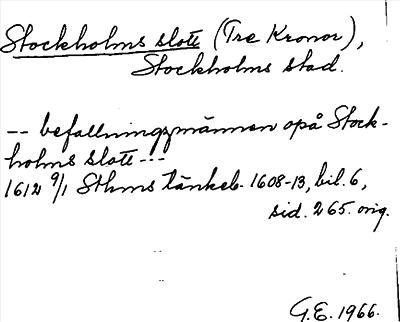 Stockholms slott (Tre Kronor),
Stockholms stad.
-- befallningzmännen opå Stock-
holms slott ---
1612 9/1 Sthms tänkeb. 1608-13, bil. 6,
sid. 265. orig.
G.E. 1966.